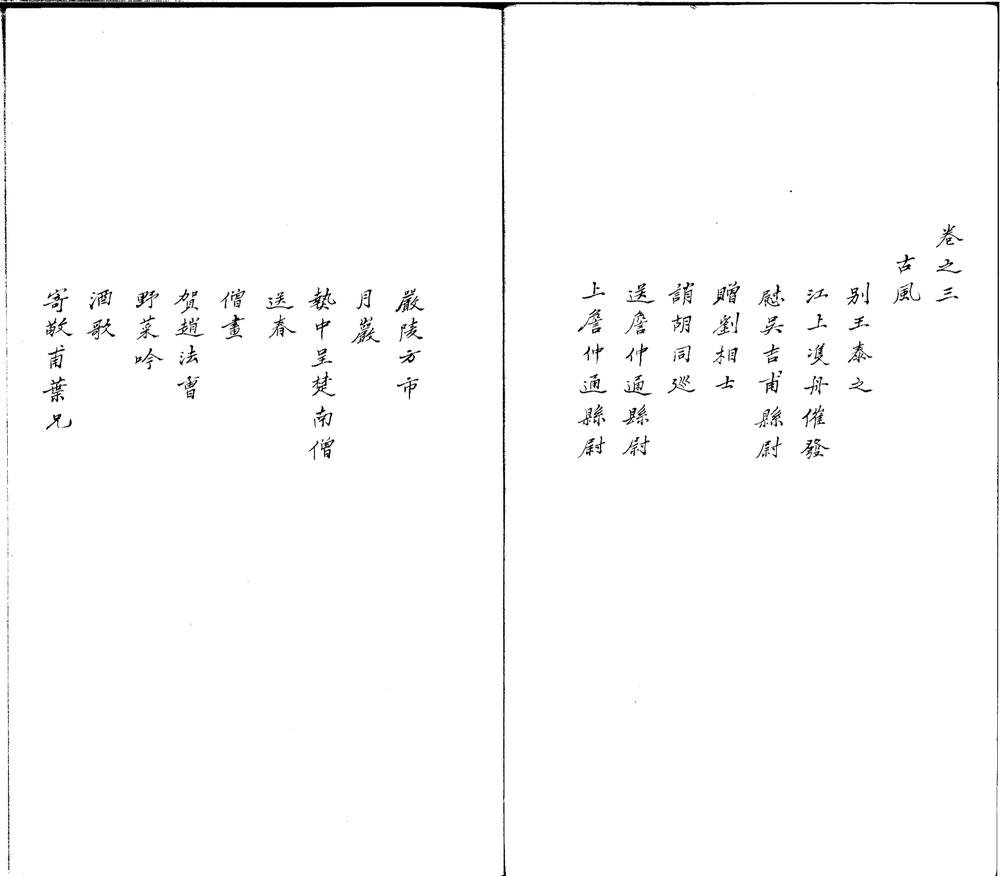 卷之三
古風
别王泰之
江上舟催發
慰吳吉甫縣尉
贈劉相士
誚胡同巡
送詹仲通縣尉
上詹仲通縣尉
嚴陵方市
月巖
熱中呈楚南僧
送春
僧畫
賀趙法曹
野菜吟
酒歌
寄敬甫葉兄